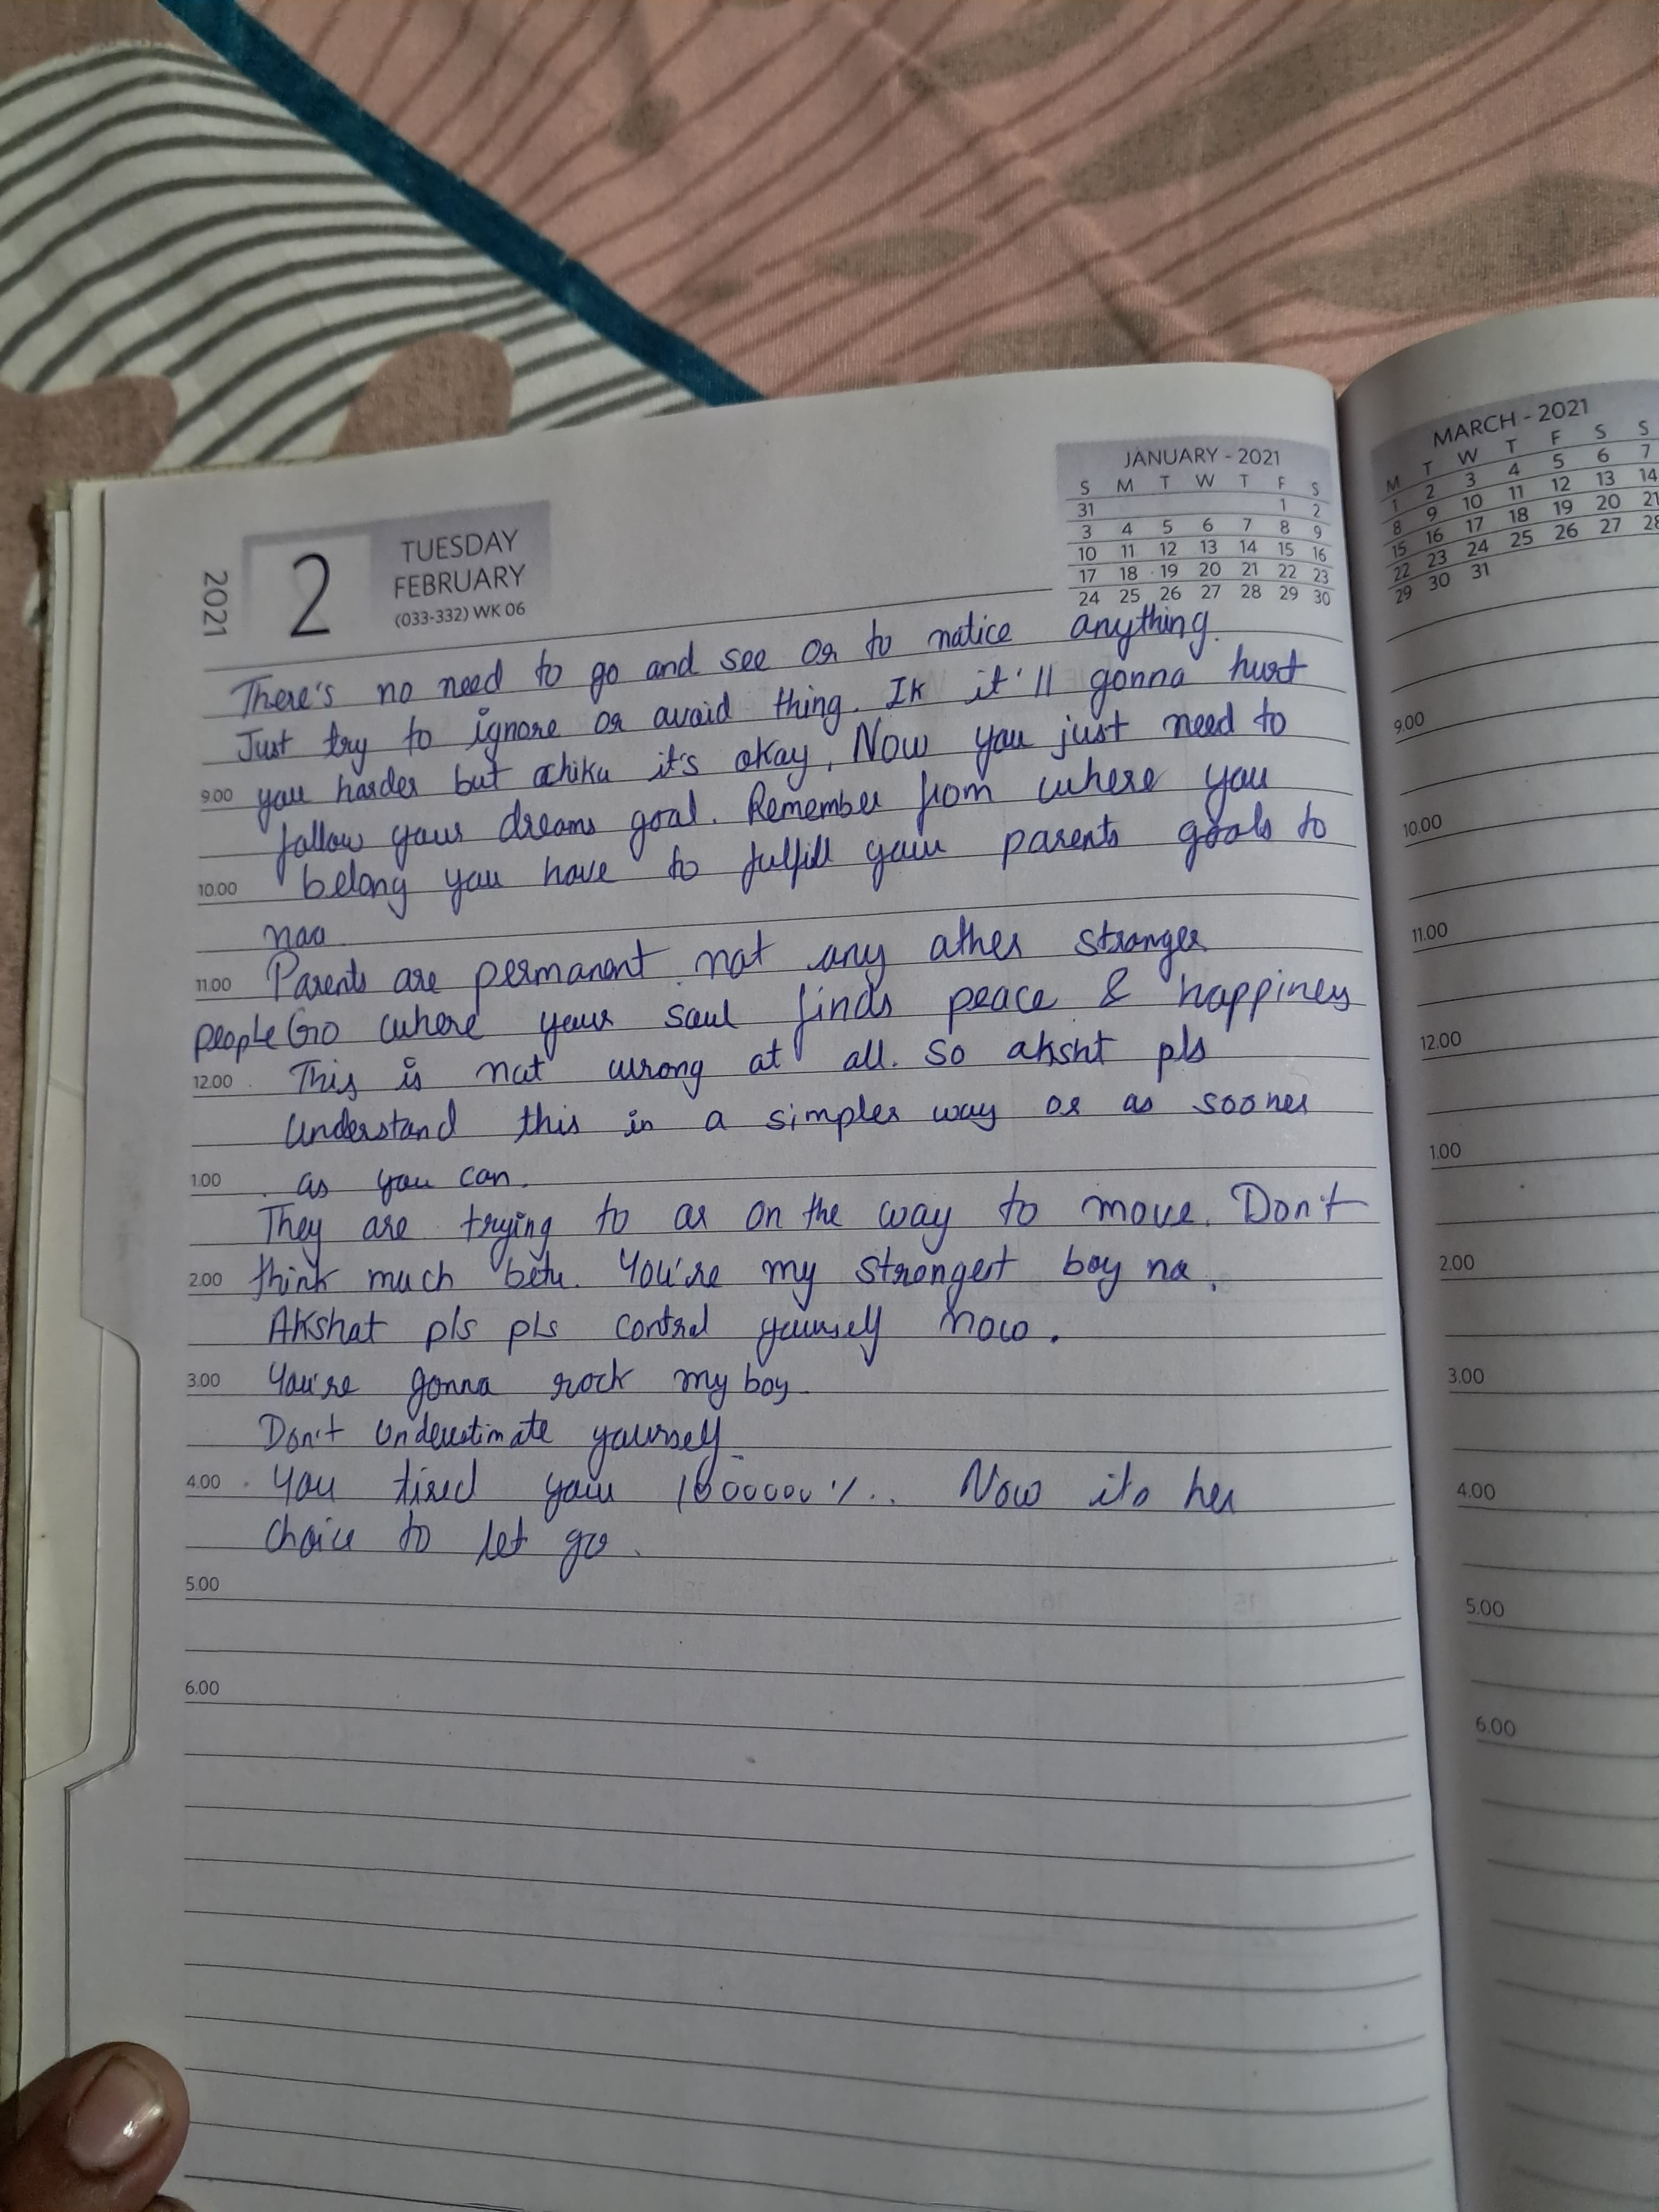 2021
2
TUESDAY
FEBRUARY
(033-332) WK 06
JANUARY - 2021
S M T W T F S
31 1 2
3 4 5 6 7 8 9
10 11 12 13 14 15 16
17 18 19 20 21 22 23
24 25 26 27 28 29 30
There's no need to go and see or to notice anything.
Just try to ignore or avoid thing. Ik it'll gonna hurt
9.00 you harder but it's okay. Now you just need to
follow your dreams goal. Remember from where you
10.00 belong you have to fulfill your parents goals to
naa
11.00 Parents are permanent not any other stranger
people Go where your soul finds peace & happiney
12.00 This is not wrong at all. So aksht pls
Understand this in a simpler way or as sooner
1.00 as you can.
They are trying to or on the way to move. Don't
2.00 think much betu. You're my strongest boy na.
Akshat pls pls control yourself now.
3.00 You're gonna rock my boy
Don't underestimate yourself
4.00 You tired your 1000000%.. Now its her
choice to let go.
5.00
6.00
MARCH - 2021
M T W T F S S
1 2 3 4 5 6 7
8 9 10 11 12 13 14
15 16 17 18 19 20 21
22 23 24 25 26 27 28
29 30 31
9.00
10.00
11.00
12.00
1.00
2.00
3.00
4.00
5.00
6.00